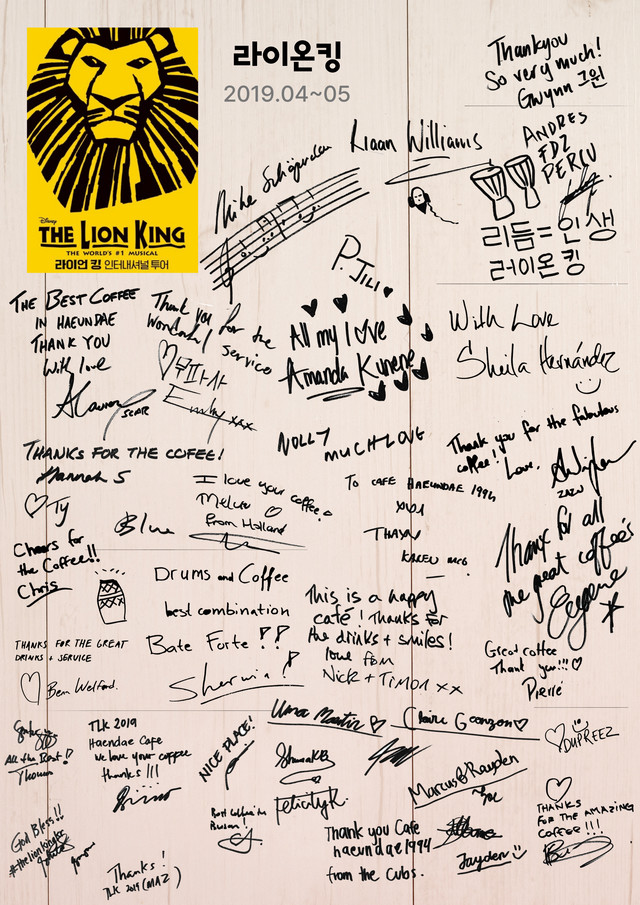 라이온킹
2019.04~05
Disney
THE LION KING
THE WORLD'S #1 MUSICAL
라이언 킹 인터내셔널 투어
Thankyou
So very much!
Gwynn
ANDRES
FDZ
PERCU
리듬=인생
라이온킹
Mike
Liaan Williams
P. JILI
THE BEST COFFEE
IN HAEUNDAE
THANK YOU
With love
SCAR
Thank you for the
Wonderful service
무파사
xxx
All my love
Amanda Kunene
With Love
Sheila Hernández
THANKS FOR THE COFFEE!
Hannah S
Ty
NOLLY
MUCH LOVE
Thank you for the fabulous
coffee!
Love,
ZAZU
I love your coffee
From Holland
To CAFE HAEUNDAE 1994
Thanx for all
the great coffee's
Eugene
Cheers for
the Coffee!!
Chris
Drums and Coffee
best combination
Bate Forte!!
This is a happy
café! Thanks for
the drinks + smiles!
love from
Nick + TIMON xx
THANKS FOR THE GREAT
DRINKS + SERVICE
Ben Welford.
Great coffee
Thank you!!!
Pierré
All the Best!
Thomas
TLK 2019
Haendae Cafe
we love your coffee
thanks !!!
NICE PLACE!
Uma Martin
Claire Goonzon
DUPREEZ
Felicity K.
Marcus B Rayden
Best coffee in
Busan!
Thank you Cafe
haeundae1994
from the Cubs.
Jayden
THANKS
FOR THE AMAZING
COFFEE!!!
God Bless!!
Thanks!
TLK 2019 (MAZ)